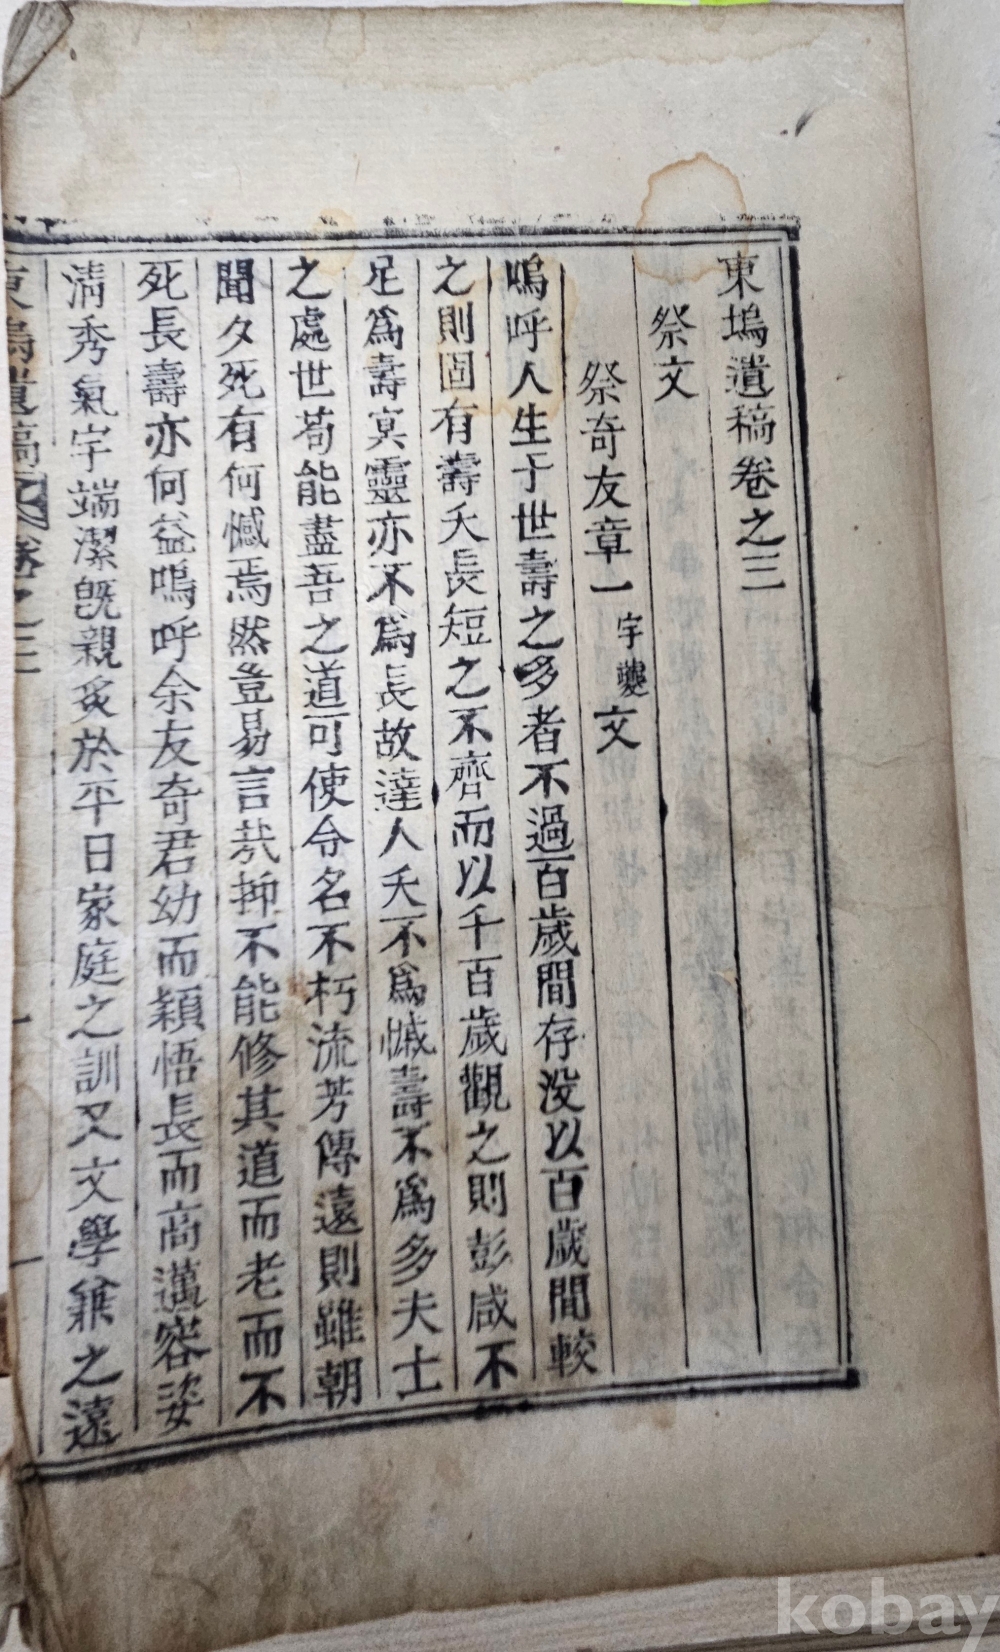 東塢遺稿卷之三
祭文
祭奇友章一宇夔文
嗚呼人生于世壽之多者不過百歲間存没以百歲間較
之則固有壽夭長短之不齊而以千百歲觀之則彭咸不
足爲壽冥靈亦不爲長故達人夭不爲慽壽不爲多夫士
之處世苟能盡吾之道可使令名不朽流芳傳遠則雖朝
聞夕死有何憾焉然豈易言哉抑不能修其道而老而不
死長壽亦何益嗚呼余友奇君幼而穎悟長而高邁容姿
淸秀氣宇端潔旣親炙於平日家庭之訓又文學兼之遠
東塢遺稿 卷之三
kobay